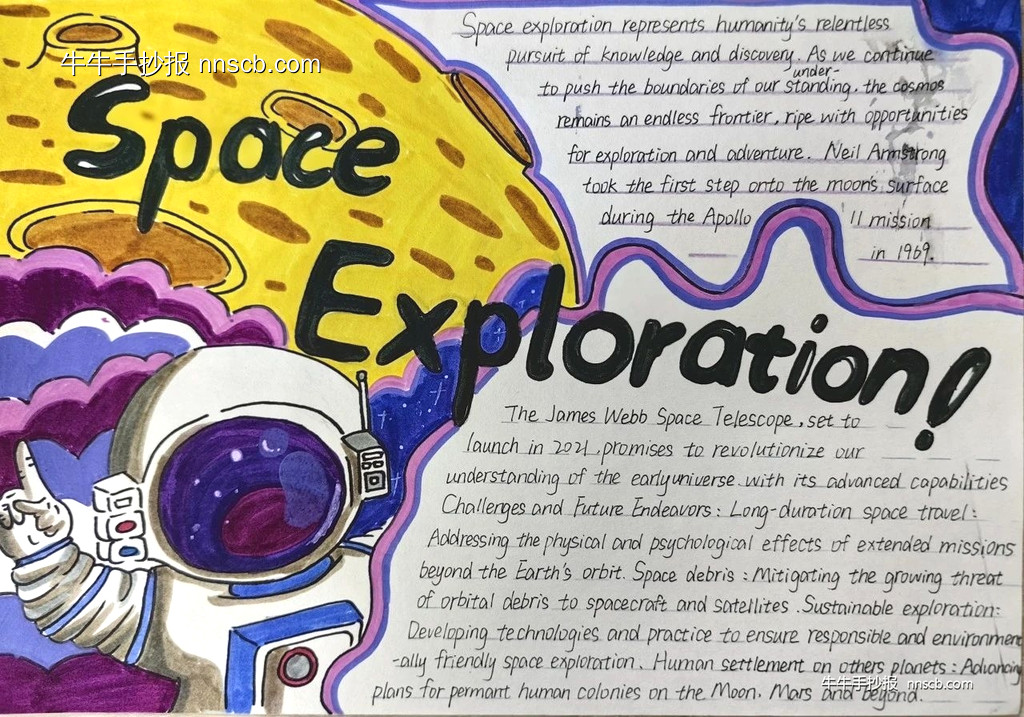 牛牛手抄报 nnscb.com
Space
Exploration!
Space exploration represents humanity's relentless
pursuit of knowledge and discovery. As we continue
to push the boundaries of our under-standing, the cosmos
remains an endless frontier, ripe with opportunities
for exploration and adventure. Neil Armstrong
took the first step onto the moon's surface
during the Apollo 11 mission
in 1969.
The James Webb Space Telescope, set to
launch in 2021, promises to revolutionize our
understanding of the early universe with its advanced capabilities
Challenges and Future Endeavors: Long-duration space travel:
Addressing the physical and psychological effects of extended missions
beyond the Earth's orbit. Space debris: Mitigating the growing threat
of orbital debris to spacecraft and satellites. Sustainable exploration:
Developing technologies and practice to ensure responsible and environment
-ally friendly space exploration. Human settlement on others planets: Advancing
plans for permant human colonies on the Moon. Mars and beyond.
牛牛手抄报 nnscb.com